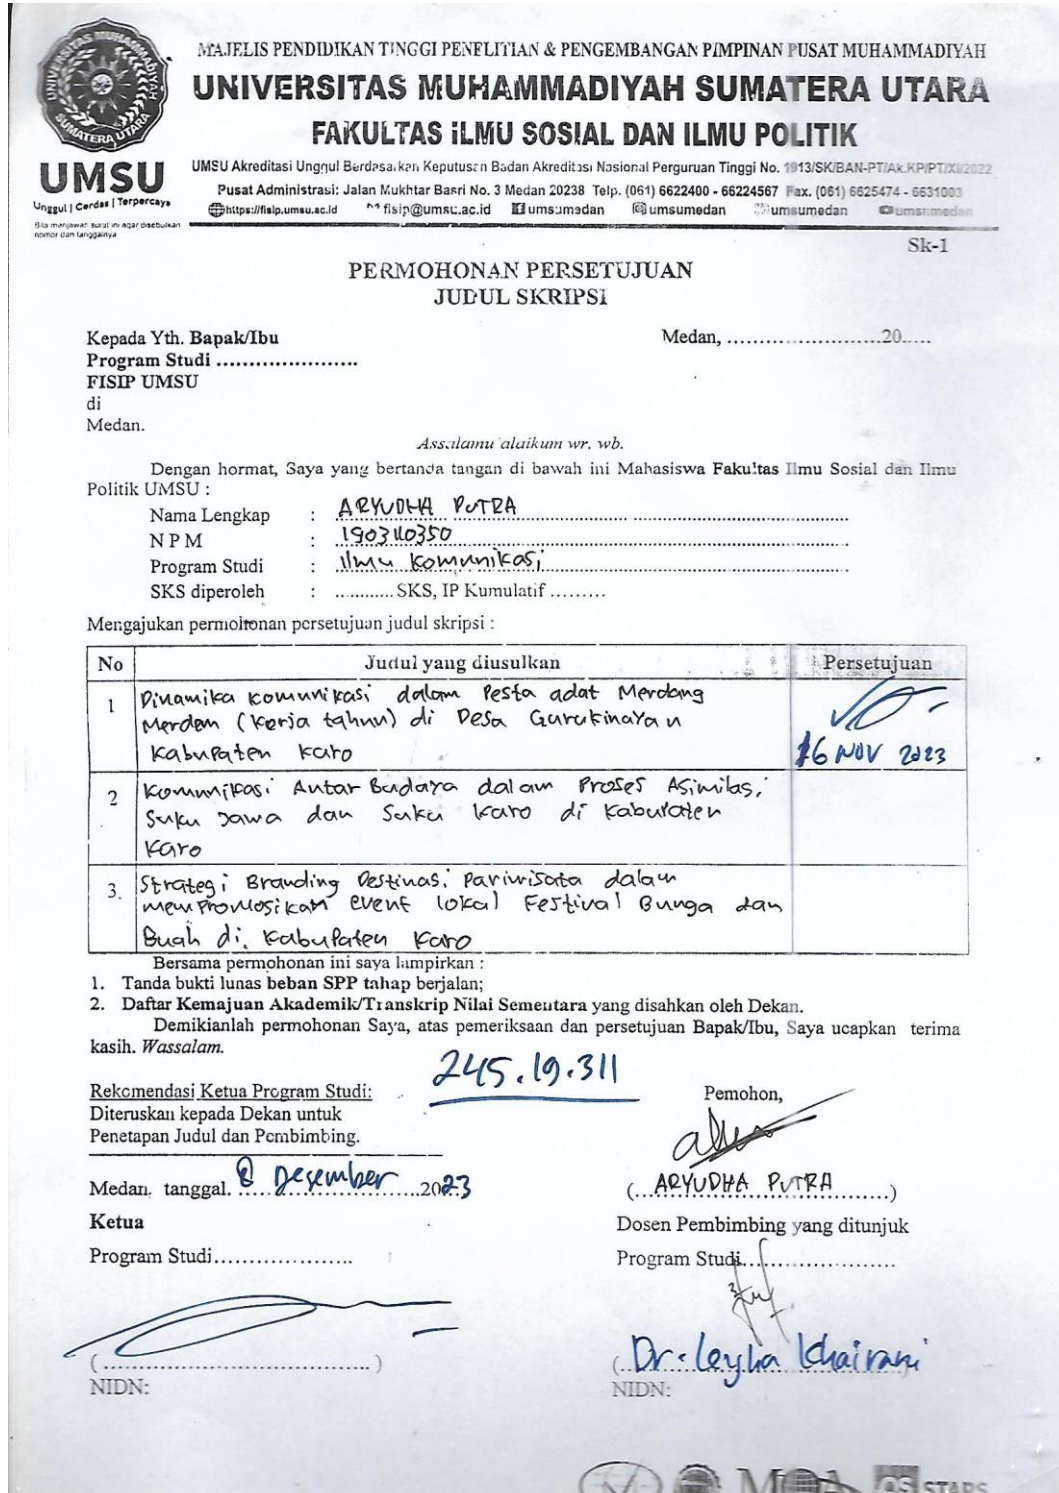 MAJELIS PENDIDIKAN TINGGI PENELITIAN & PENGEMBANGAN PIMPINAN PUSAT MUHAMMADIYAH
UNIVERSITAS MUHAMMADIYAH SUMATERA UTARA
FAKULTAS ILMU SOSIAL DAN ILMU POLITIK
UNIVERSITAS MUHAMMADIYAH
SUMATERA UTARA
UMSU
Unggul | Cerdas | Terpercaya
Bila menjawab surat ini agar disebutkan
nomor dan tanggalnya
UMSU Akreditasi Unggul Berdasarkan Keputusan Badan Akreditasi Nasional Perguruan Tinggi No. 1913/SK/BAN-PT/Ak.KP/PT/XI/2022
Pusat Administrasi: Jalan Mukhtar Basri No. 3 Medan 20238 Telp. (061) 6622400 - 66224567 Fax. (061) 6625474 - 6631003
https://fisip.umsu.ac.id fisip@umsu.ac.id umsumedan umsumedan umsumedan umsumedan
Sk-1
PERMOHONAN PERSETUJUAN
JUDUL SKRIPSI
Kepada Yth. Bapak/Ibu Medan, ........................20.....
Program Studi .....................
FISIP UMSU
di
Medan.
Assalamu'alaikum wr. wb.
Dengan hormat, Saya yang bertanda tangan di bawah ini Mahasiswa Fakultas Ilmu Sosial dan Ilmu
Politik UMSU :
Nama Lengkap : ARYUDHA PUTRA
N P M : 1903110350
Program Studi : Ilmu Komunikasi
SKS diperoleh : ............ SKS, IP Kumulatif .........
Mengajukan permohonan persetujuan judul skripsi :
No Judul yang diusulkan Persetujuan
1 Dinamika Komunikasi dalam Pesta adat Merdang
Merdem (Kerja tahun) di Desa Gurukinayan
Kabupaten Karo
16 NOV 2023
2 Komunikasi Antar Budaya dalam Proses Asimilasi
Suku Jawa dan Suku Karo di Kabupaten
Karo
3. Strategi Branding Destinasi Pariwisata dalam
mempromosikan event lokal Festival Bunga dan
Buah di Kabupaten Karo
Bersama permohonan ini saya lampirkan :
1. Tanda bukti lunas beban SPP tahap berjalan;
2. Daftar Kemajuan Akademik/Transkrip Nilai Sementara yang disahkan oleh Dekan.
Demikianlah permohonan Saya, atas pemeriksaan dan persetujuan Bapak/Ibu, Saya ucapkan terima
kasih. Wassalam.
245.19.311
Rekomendasi Ketua Program Studi:
Diteruskan kepada Dekan untuk
Penetapan Judul dan Pembimbing.
Medan, tanggal. 8 Desember 2023
Ketua
Program Studi.....................
(........................................)
NIDN:
Pemohon,
(...ARYUDHA PUTRA...)
Dosen Pembimbing yang ditunjuk
Program Studi.......................
(Dr. Leylia Khairani
NIDN:
STARS